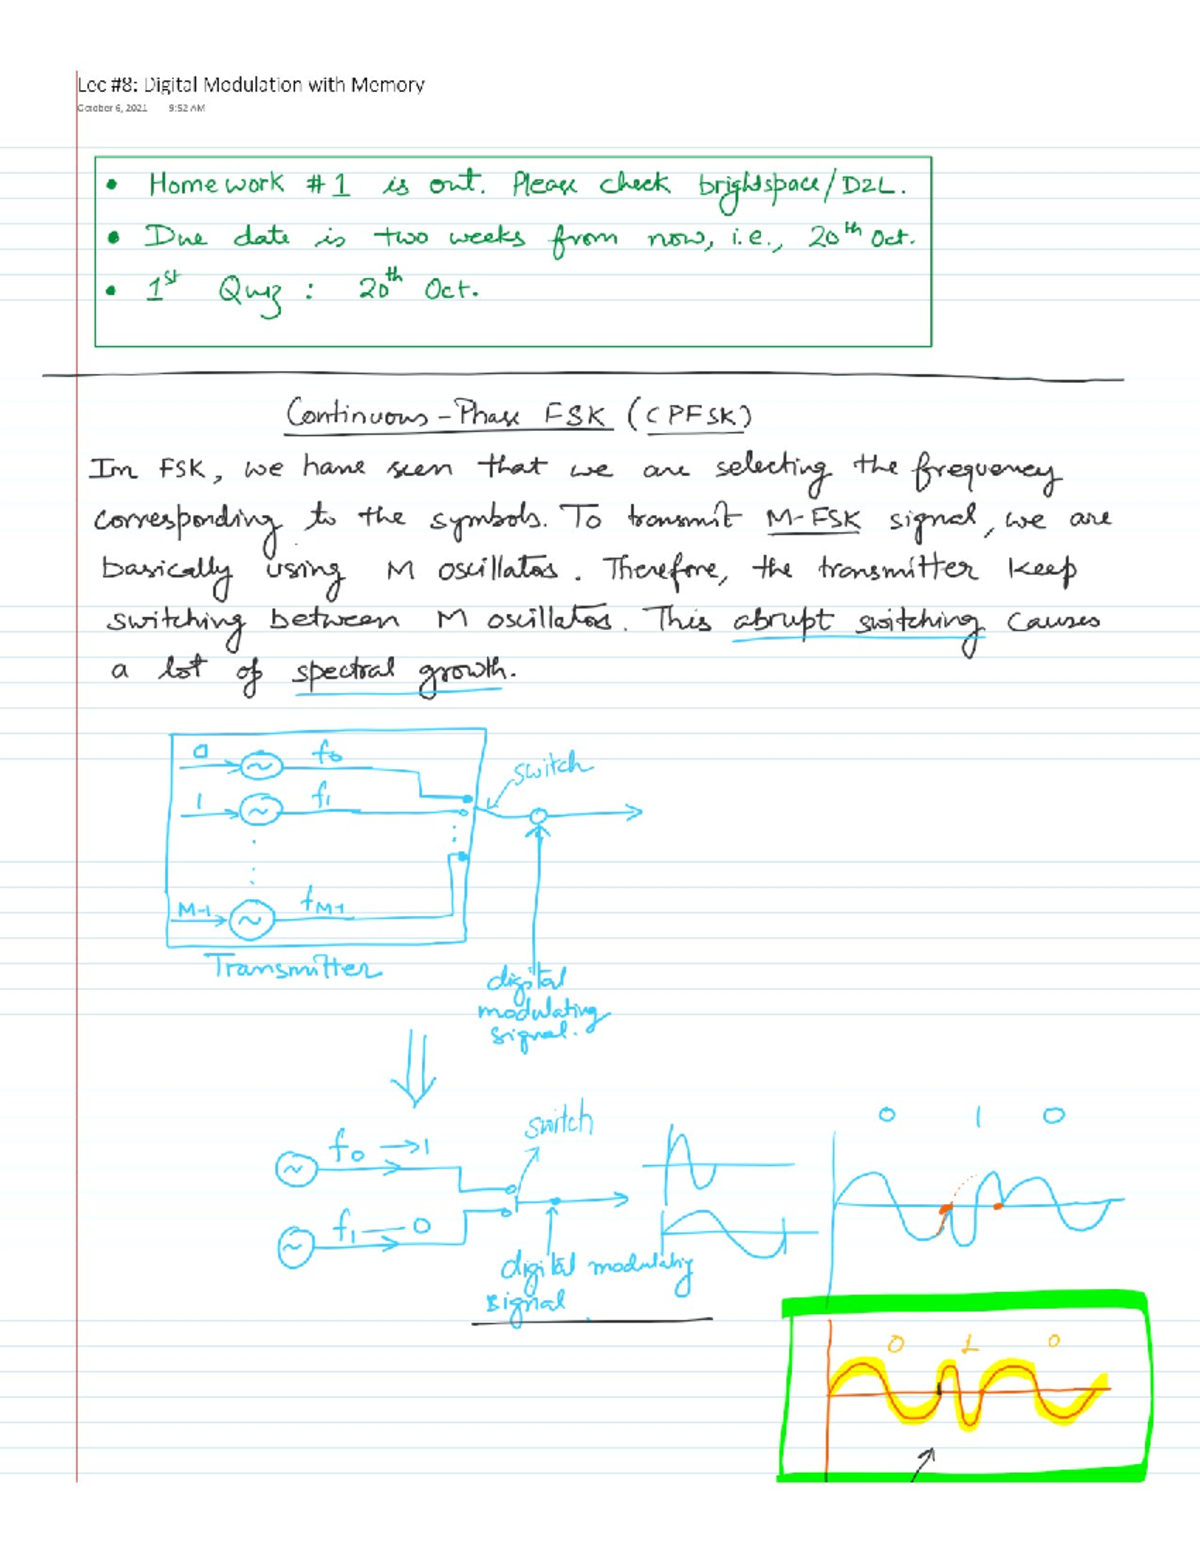 Lec #8: Digital Modulation with Memory
October 6, 2021 9:52 AM
• Homework #1 is out. Please check brightspace/D2L.
• Due date is two weeks from now, i.e., 20th Oct.
• 1st Quiz : 20th Oct.
Continuous-Phase FSK (CPFSK)
In FSK, we have seen that we are selecting the frequency
corresponding to the symbols. To transmit M-FSK signal, we are
basically using M oscillators. Therefore, the transmitter keep
switching between M oscillators. This abrupt switching causes
a lot of spectral growth.
0 f0
switch
1 f1
M-1 fM-1
Transmitter
digital
modulating
signal.
switch
0 1 0
f0 →1
f1 — 0
digital modulating
signal
0 1 0